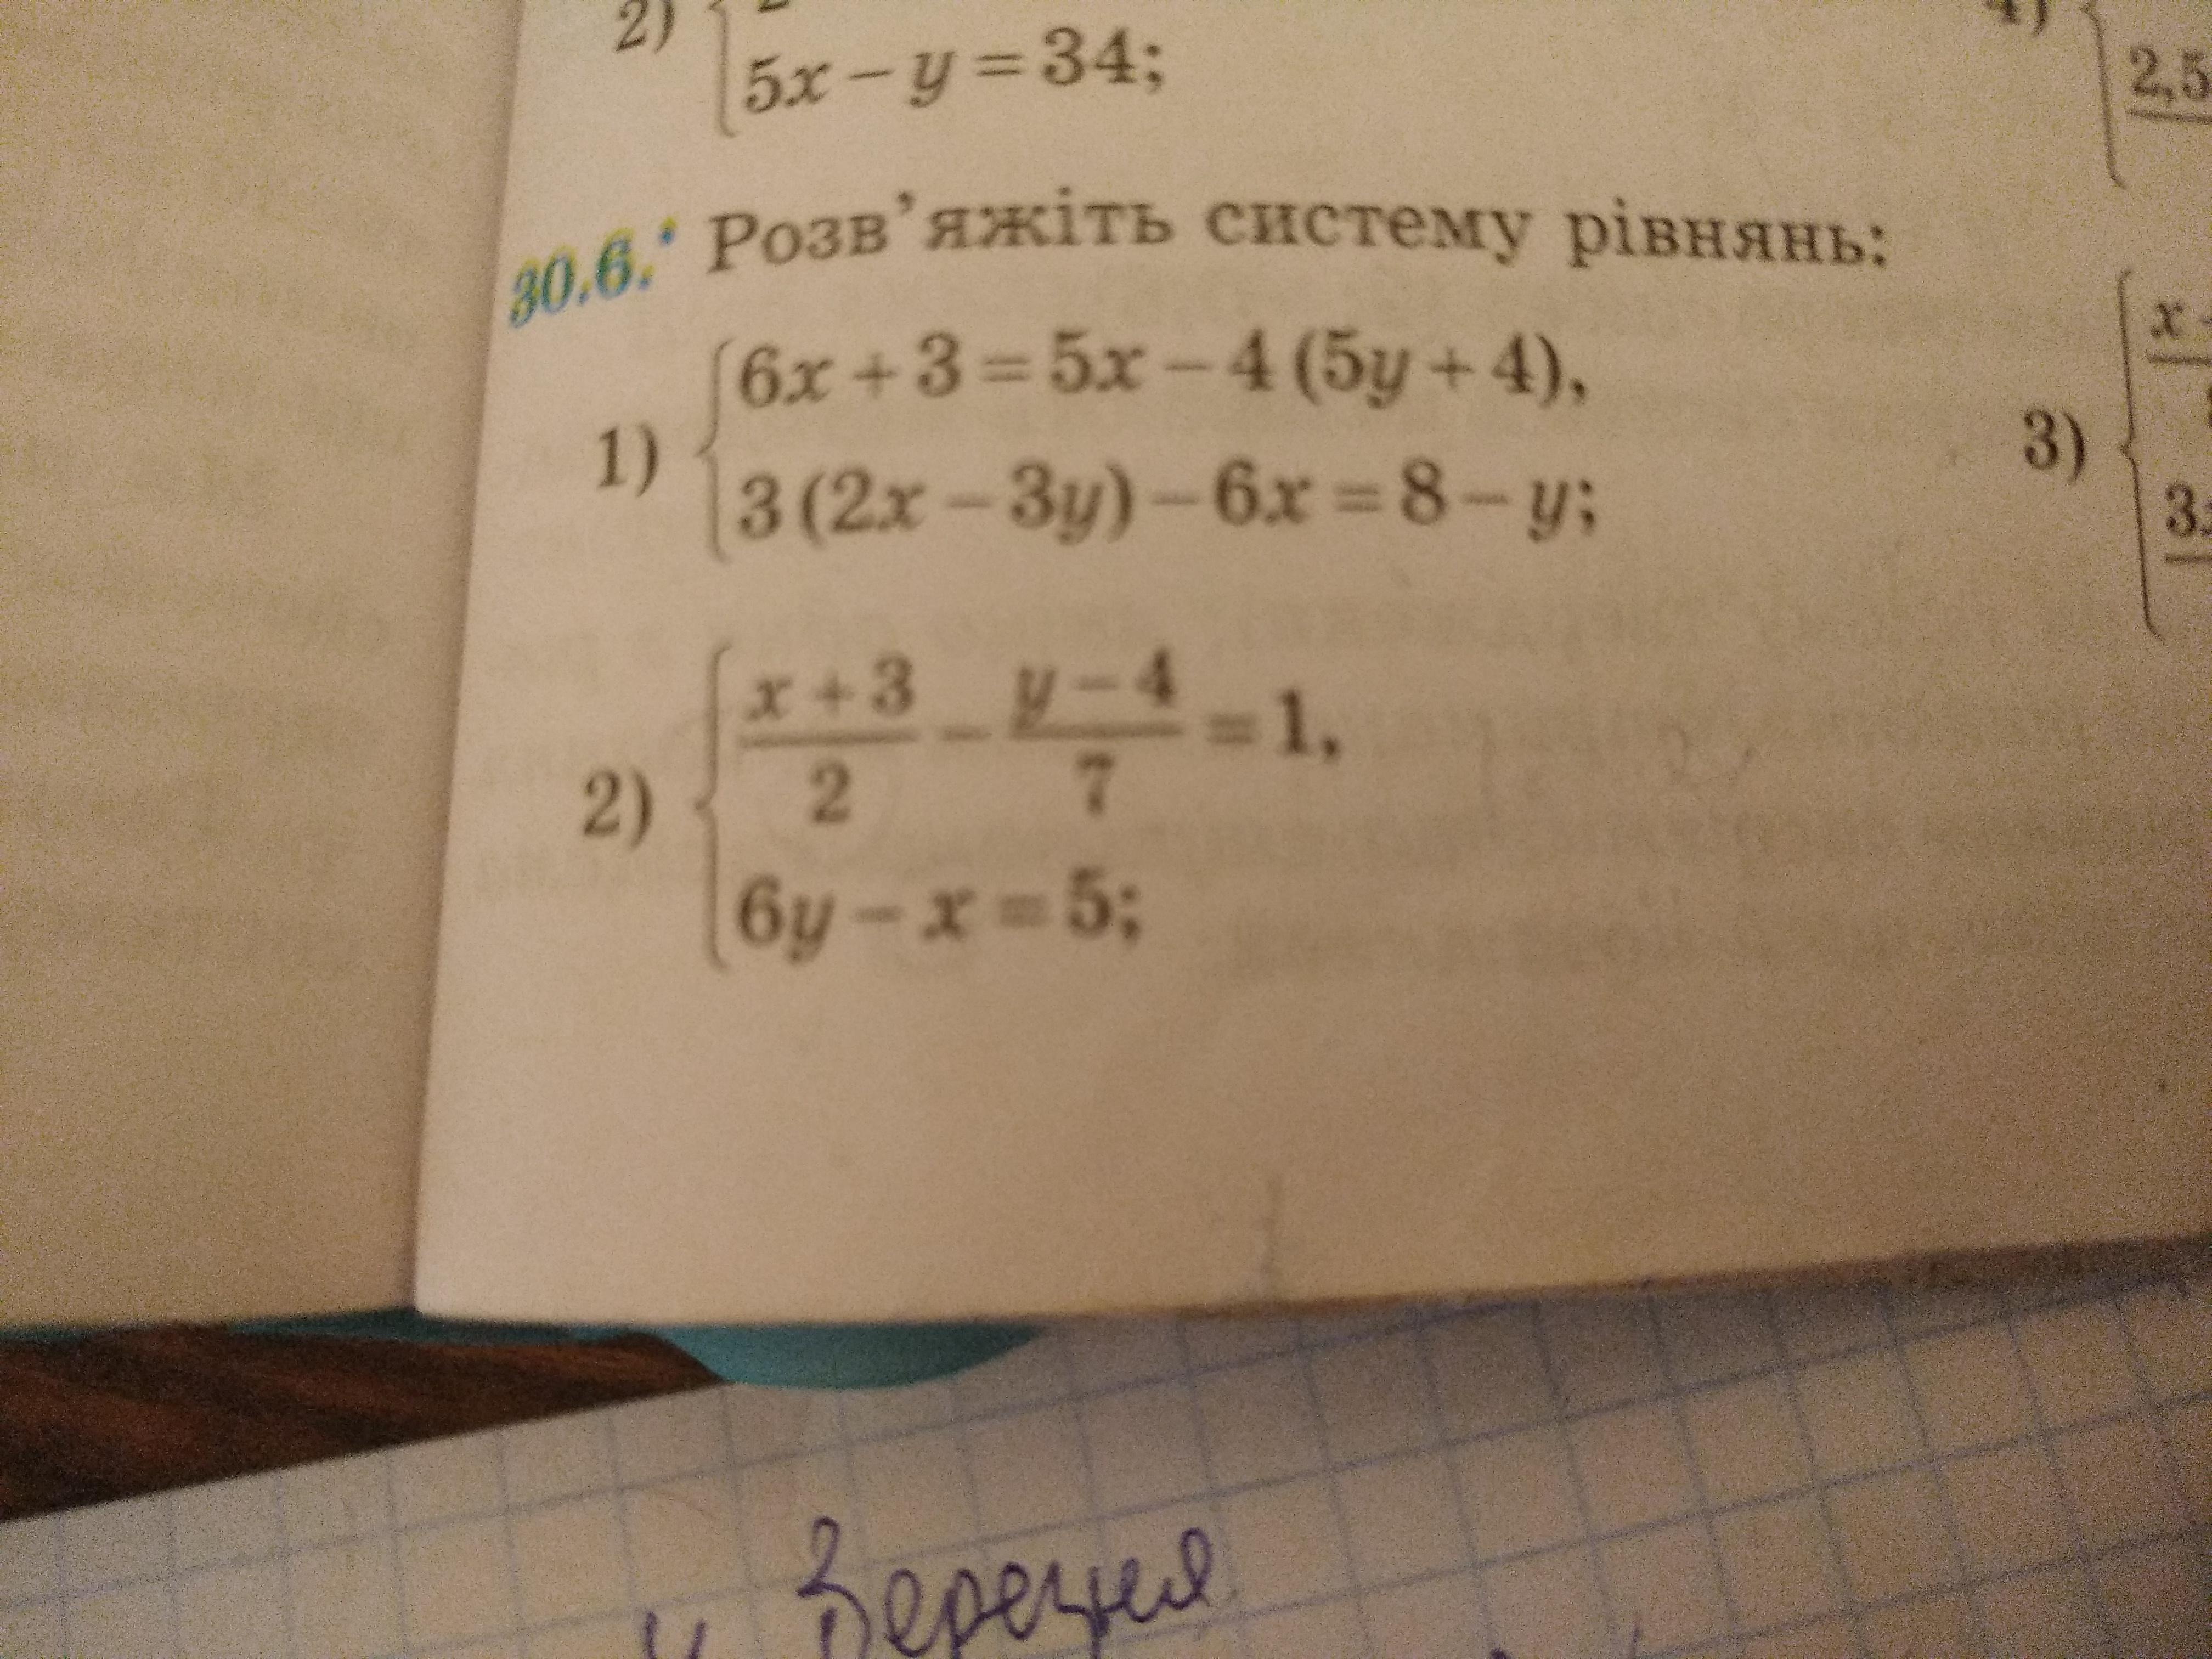 2)
5x − y = 34;
2,5
30.6.• Розв’яжіть систему рівнянь:
1) 6x + 3 = 5x − 4 (5y + 4),
3 (2x − 3y) − 6x = 8 − y;
2) x + 3 / 2 − y − 4 / 7 = 1,
6y − x = 5;
3)